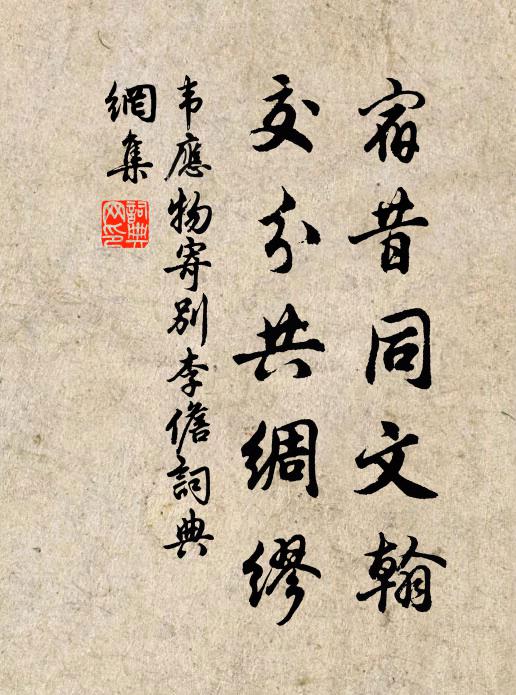 宿昔同文翰
交分共綢繆
韦應物寄别李儋詞典
網集
詞典網印